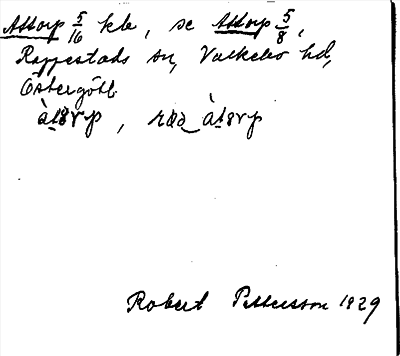 Attorp 5/16 kle, se Attorp 5/8,
Rappestads sn, Valkebo hd,
Östergötl.
àt8rp, ràt8rp
Robert Pettersson 1929